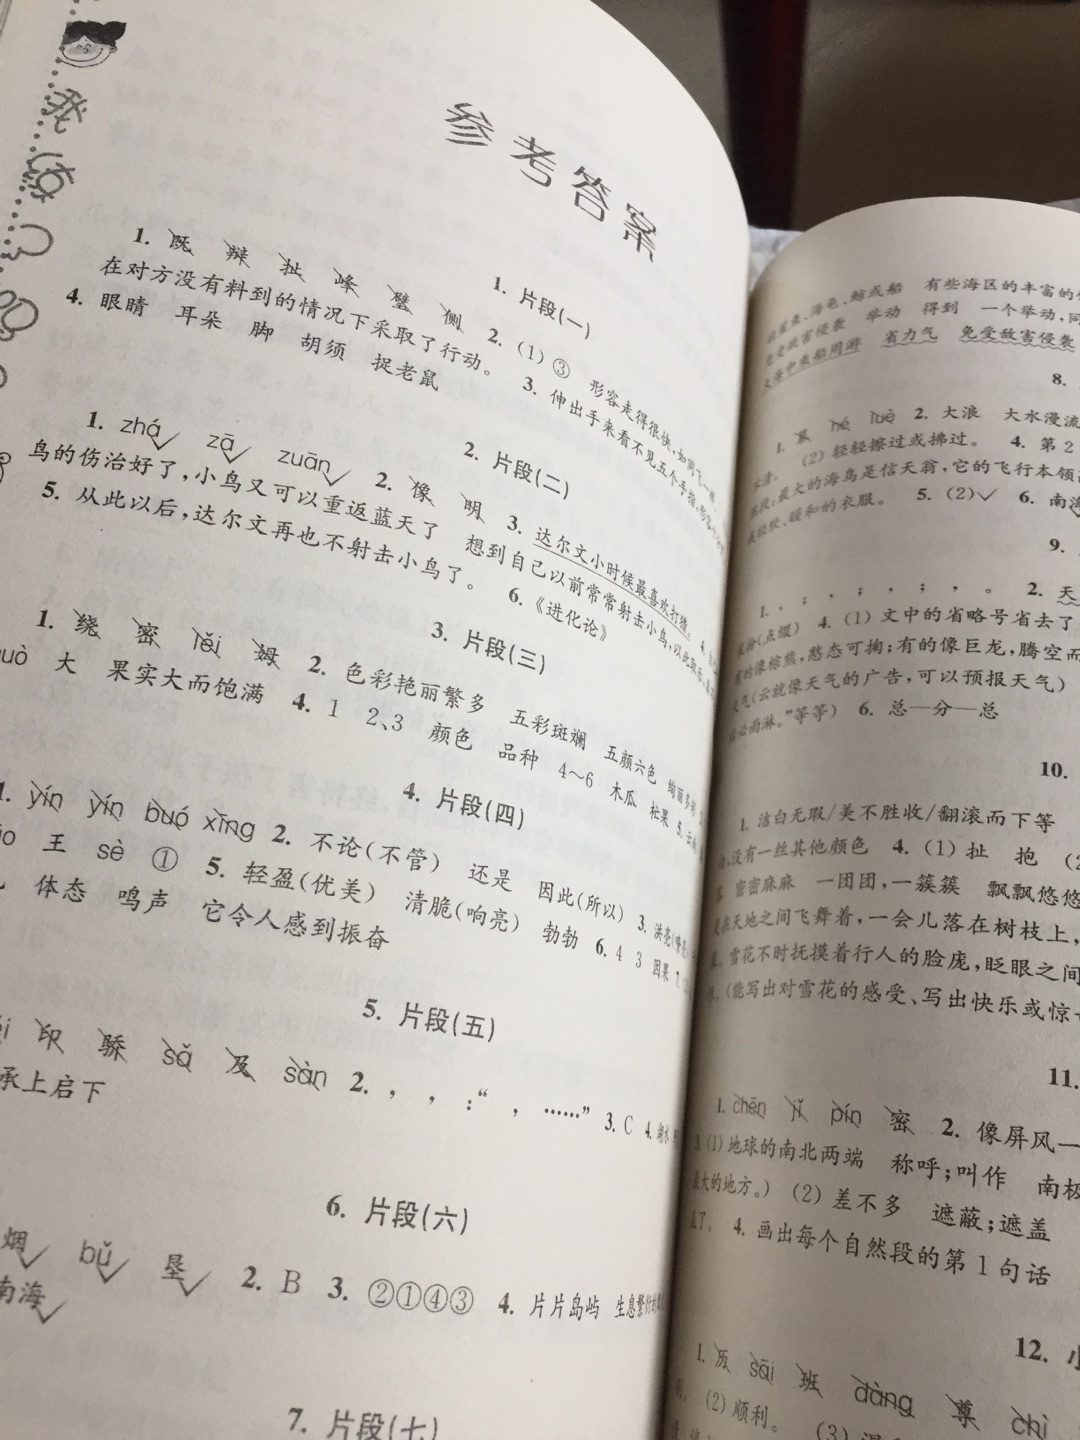 参考答案
1. 片段(一)
1. 既 辩 扯 峰 璧 侧 2. (1)③ 形容走得很快,如同飞一样。
在对方没有料到的情况下采取了行动。 3. 伸出手来看不见五个手指,形容
4. 眼睛 耳朵 脚 胡须 捉老鼠
2. 片段(二)
1. zhá zā zuān 2. 像 明 3. 达尔文小时候最喜欢打猎。 4.
鸟的伤治好了,小鸟又可以重返蓝天了 想到自己以前常常射击小鸟,以此取乐,
5. 从此以后,达尔文再也不射击小鸟了。 6. 《进化论》
3. 片段(三)
1. 绕 密 lěi 姆 2. 色彩艳丽繁多 五彩斑斓 五颜六色 绚丽多彩
大 果实大而饱满 4. 1 2、3 颜色 品种 4～6 木瓜 杧果 5. 云南
4. 片段(四)
1. yín yín buó xīng 2. 不论(不管) 还是 因此(所以) 3. 洪亮
王 sè ① 5. 轻盈(优美) 清脆(响亮) 勃勃 6. 4 3 因果 7.
体态 鸣声 它令人感到振奋
5. 片段(五)
印 骄 sǎ 及 sàn 2. , , :“ , ……” 3. C 4. 湖水
承上启下
6. 片段(六)
烟 bǔ 垦 2. B 3. ②①④③ 4. 片片岛屿 生息繁衍
南海
7. 片段(七)
鲨鱼、海龟、鲸或船 有些海区的丰富的
免受敌害侵袭 举动 得到 一个举动,同
大海中乘船周游 省力气 免受敌害侵袭
8.
1. 篡 hé luè 2. 大浪 大水漫流
水清。 (2) 轻轻擦过或拂过。 4. 第2
段:最大的海鸟是信天翁,它的飞行本领
轻软、暖和的衣服。 5. (2) 6. 南海
9.
1. 、 ; , ; , 。 2. 天
(点缀) 4. (1) 文中的省略号省去了
有的像棕熊,憨态可掬;有的像巨龙,腾空而
天气(云就像天气的广告,可以预报天气)
必雨淋。”等等) 6. 总—分—总
10.
1. 洁白无瑕/美不胜收/翻滚而下等
白,没有一丝其他颜色 4. (1) 扯 抱 (2
密密麻麻 一团团,一簇簇 飘飘悠悠
在天地之间飞舞着,一会儿落在树枝上,
雪花不时抚摸着行人的脸庞,眨眼之间
(能写出对雪花的感受、写出快乐或惊
11.
1. chēn jǐ pín 密 2. 像屏风一
3. (1) 地球的南北两端 称呼;叫作 南极
最大的地方。) (2) 差不多 遮蔽;遮盖
了。 4. 画出每个自然段的第1句话
12. 小
1. 厉 sāi 班 dàng 尊 chì
(2) 顺利。 (3)